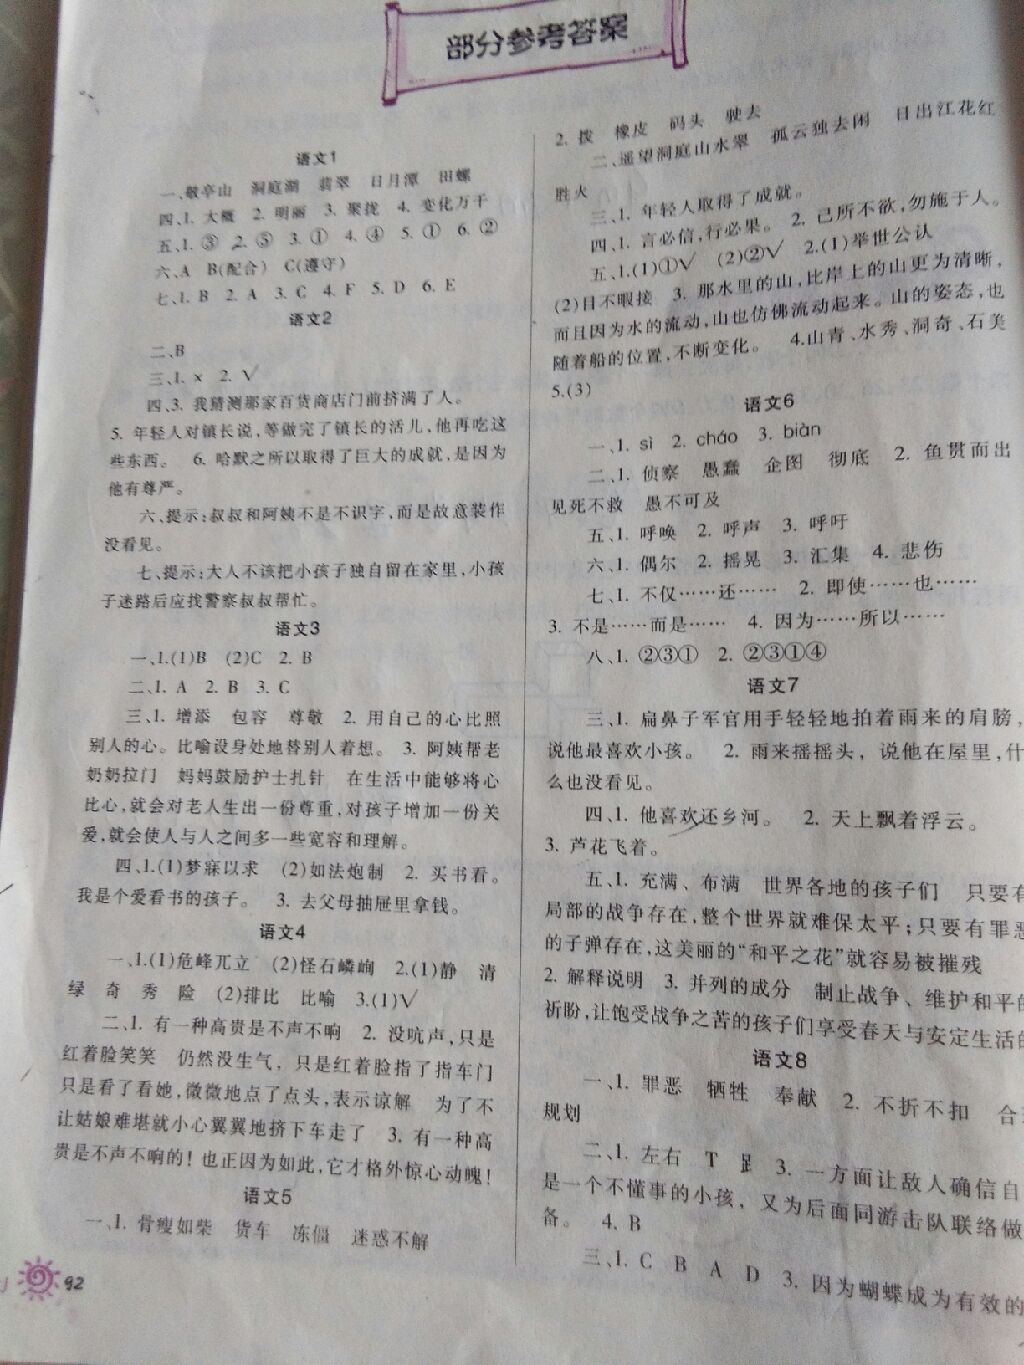 部分参考答案
语文1
一、敬亭山 洞庭湖 翡翠 日月潭 田螺
四、1. 大概 2. 明丽 3. 聚拢 4. 变化万千
五、1. ③ 2. ⑤ 3. ① 4. ④ 5. ① 6. ②
六、A B(配合) C(遵守)
七、1. B 2. A 3. C 4. F 5. D 6. E
语文2
二、B
三、1. × 2. √
四、3. 我猜测那家百货商店门前挤满了人。
5. 年轻人对镇长说,等做完了镇长的活儿,他再吃这
些东西。 6. 哈默之所以取得了巨大的成就,是因为
他有尊严。
六、提示:叔叔和阿姨不是不识字,而是故意装作
没看见。
七、提示:大人不该把小孩子独自留在家里,小孩
子迷路后应找警察叔叔帮忙。
语文3
一、1.(1)B (2)C 2. B
二、1. A 2. B 3. C
三、1. 增添 包容 尊敬 2. 用自己的心比照
别人的心。比喻设身处地替别人着想。 3. 阿姨帮老
奶奶拉门 妈妈鼓励护士扎针 在生活中能够将心
比心,就会对老人生出一份尊重,对孩子增加一份关
爱,就会使人与人之间多一些宽容和理解。
四、1.(1)梦寐以求 (2)如法炮制 2. 买书看。
我是个爱看书的孩子。 3. 去父母抽屉里拿钱。
语文4
一、1.(1)危峰兀立 (2)怪石嶙峋 2.(1)静 清
绿 奇 秀 险 (2)排比 比喻 3.(1)√
二、1. 有一种高贵是不声不响 2. 没吭声,只是
红着脸笑笑 仍然没生气,只是红着脸指了指车门
只是看了看她,微微地点了点头,表示谅解 为了不
让姑娘难堪就小心翼翼地挤下车走了 3. 有一种高
贵是不声不响的!也正因为如此,它才格外惊心动魄!
语文5
一、1. 骨瘦如柴 货车 冻僵 迷惑不解
92
2. 拨 橡皮 码头 驶去
二、遥望洞庭山水翠 孤云独去闲 日出江花红
胜火
三、1. 年轻人取得了成就。
四、1. 言必信,行必果。 2. 己所不欲,勿施于人。
五、1.(1)①√ (2)②√ 2.(1)举世公认
(2)目不暇接 3. 那水里的山,比岸上的山更为清晰,
而且因为水的流动,山也仿佛流动起来。山的姿态,也
随着船的位置,不断变化。 4.山青、水秀、洞奇、石美
5.(3)
语文6
一、1. sì 2. cháo 3. biàn
二、1. 侦察 愚蠢 企图 彻底 2. 鱼贯而出
见死不救 愚不可及
五、1. 呼唤 2. 呼声 3. 呼吁
六、1. 偶尔 2. 摇晃 3. 汇集 4. 悲伤
七、1. 不仅……还…… 2. 即使……也……
3. 不是……而是…… 4. 因为……所以……
八、1. ②③① 2. ②③①④
语文7
三、1. 扁鼻子军官用手轻轻地拍着雨来的肩膀,
说他最喜欢小孩。 2. 雨来摇摇头,说他在屋里,什
么也没看见。
四、1. 他喜欢还乡河。 2. 天上飘着浮云。
3. 芦花飞着。
五、1. 充满、布满 世界各地的孩子们 只要有
局部的战争存在,整个世界就难保太平;只要有罪恶
的子弹存在,这美丽的“和平之花”就容易被摧残
2. 解释说明 3. 并列的成分 制止战争、维护和平的
祈盼,让饱受战争之苦的孩子们享受春天与安定生活的
语文8
一、1. 罪恶 牺牲 奉献 2. 不折不扣 合
规划
二、1. 左右 T 𧾷 3. 一方面让敌人确信自
是一个不懂事的小孩,又为后面同游击队联络做
备。 4. B
三、1. C B A D 3. 因为蝴蝶成为有效的